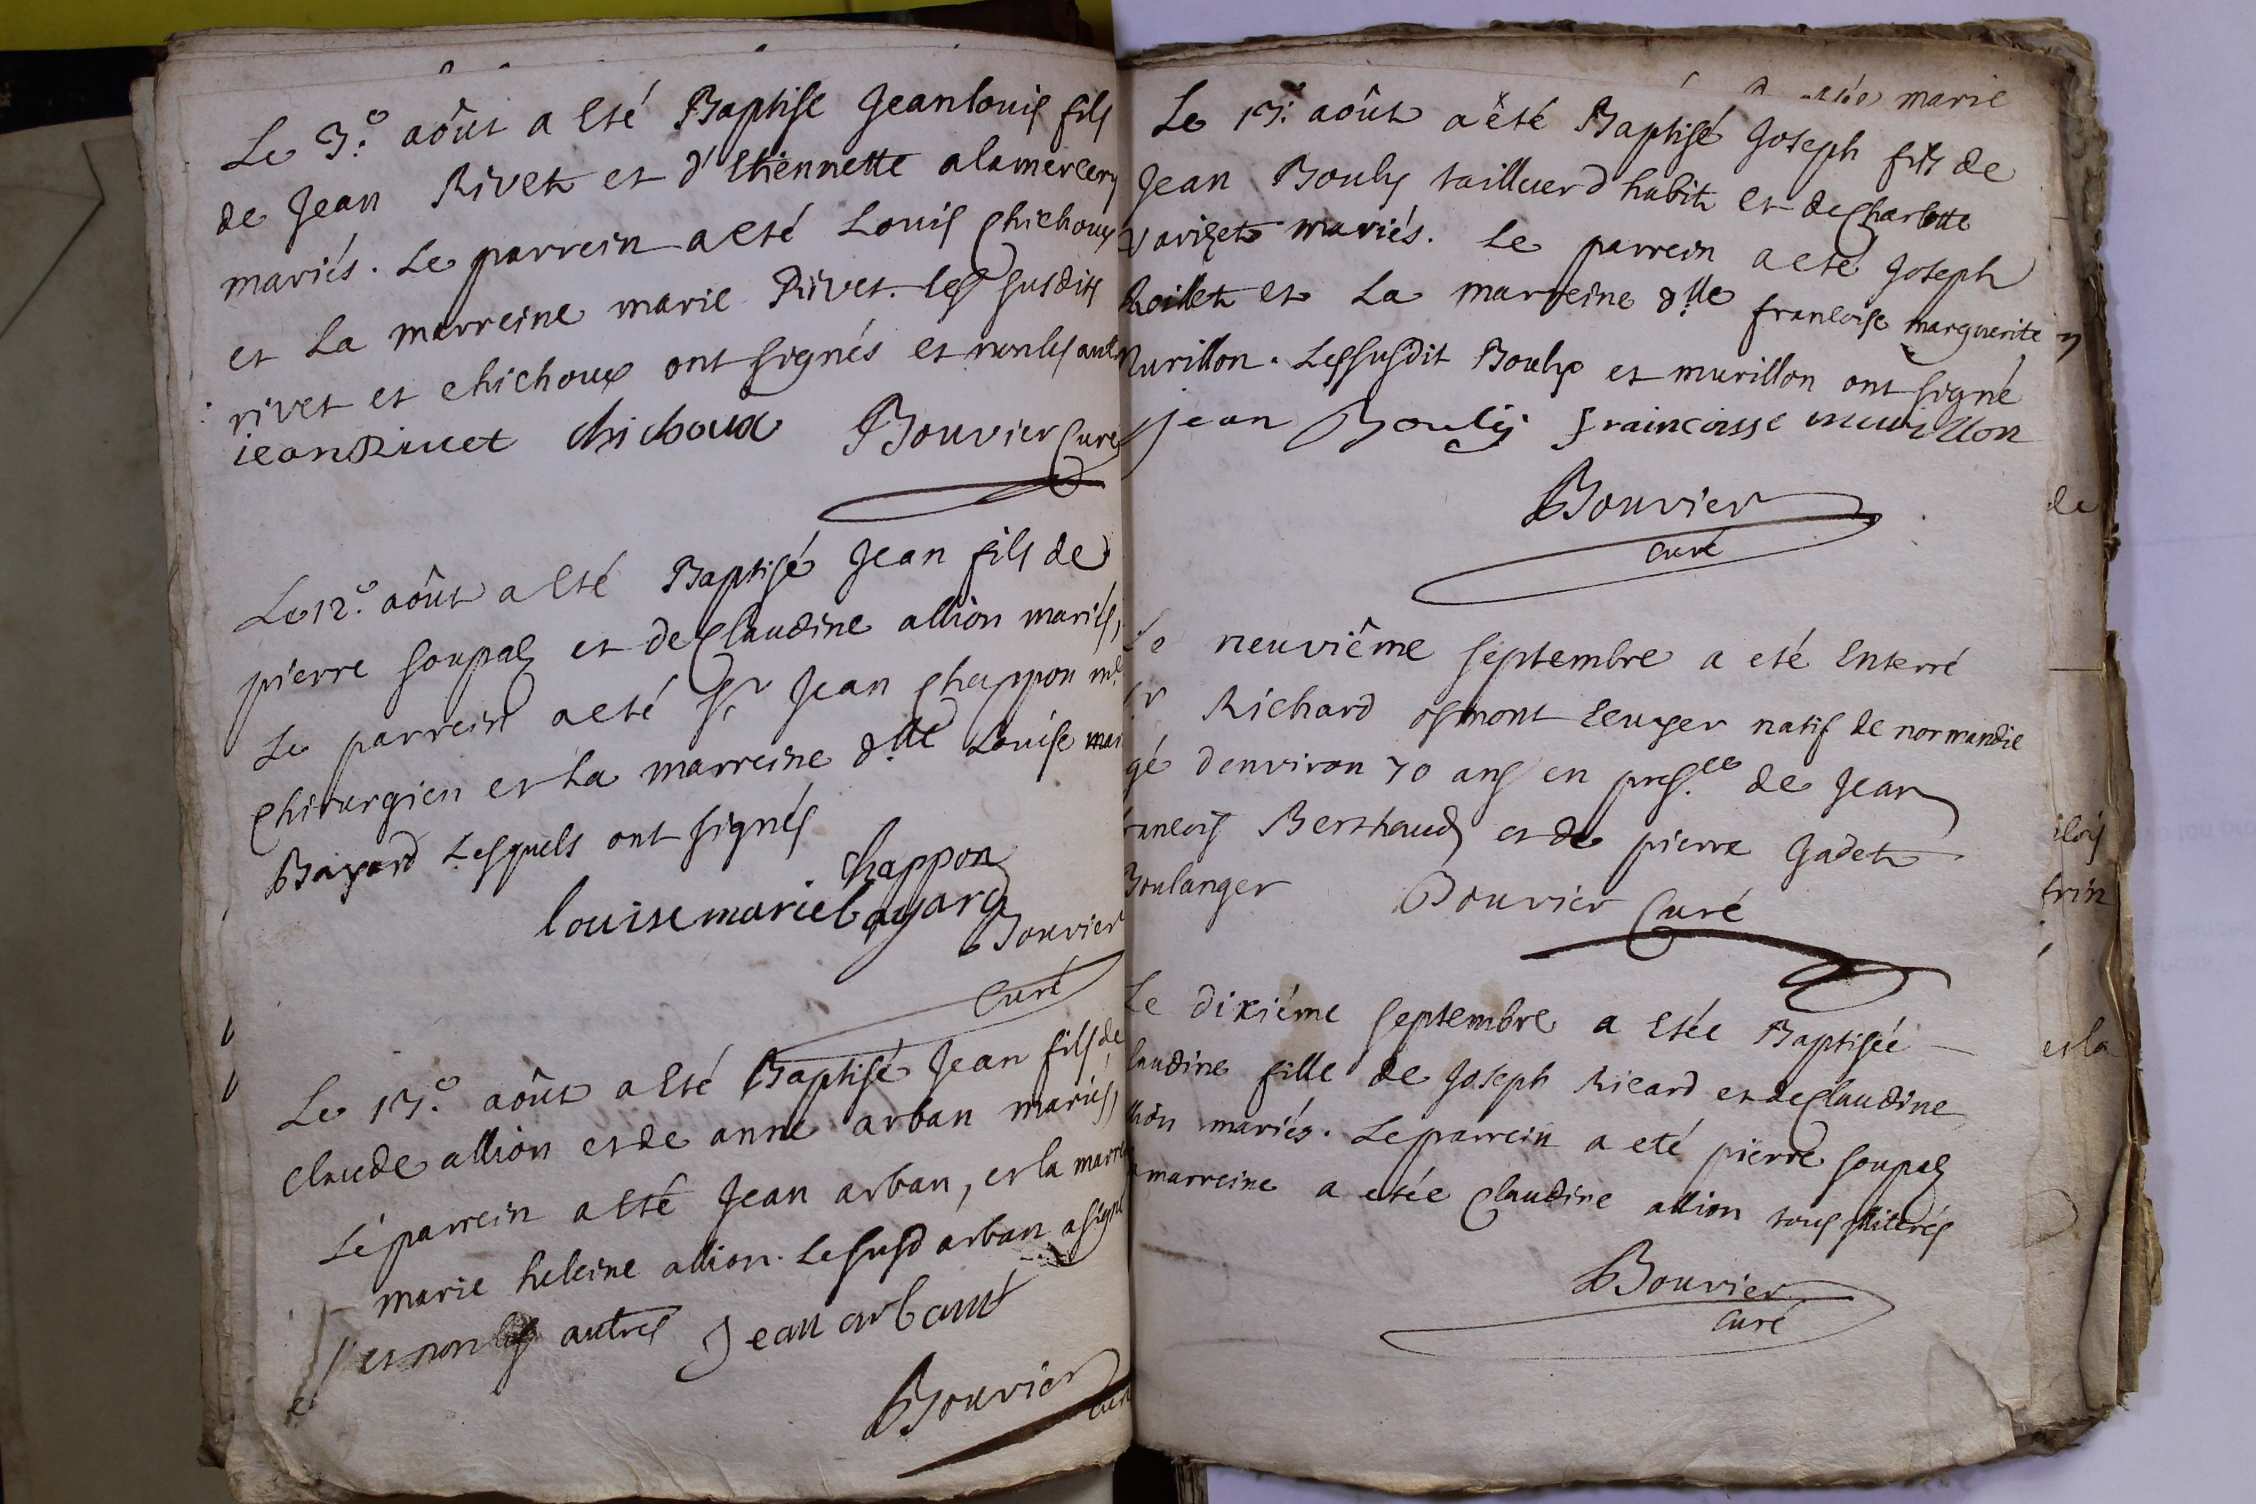 Le 3.e aôut a Eté Baptise Jean louis fils
de Jean Rivet et d'Etiennette alamercery
mariés. Le parrein a eté Louis Chichoux
et La marreine marie Rivet. les susdits
rivet et chichoux ont signés et non les
jean Rivet chichoux Bouvier Curé
Le 12.e aôut a Eté Baptisé Jean fils de
pierre soupas et de Claudine allion mariés,
Le parrein a eté Sr Jean Chappon me
Chirurgien et La marreine dlle Louise
Bayard Lesquels ont signés
Chappon
louise marie bayard
Bouvier
Curé
Le 13.e aôut a Eté Baptisé Jean fils de
claude allion et de anne arban mariés,
Le parrein a Eté Jean arban, et la
marie heleine allion. Le susd arban a signé
et non les autres Jean arbant
Bouvier
marie
Le 13.e aôut a êté Baptisé Joseph fils de
Jean Bouly tailleur d habit et de Charlotte
mariés. Le parrein a eté Joseph
Roillet et La marreine dlle francoise marguerite
Murillon. Les susdit Bouly et murillon ont signé
jean Bouly fraincoisse murillon
Bouvier
curé
Le neuviême septembre a eté Enterré
Sr Richard osmont Ecuyer natif de normandie
gé d'environ 70 ans en presce de Jean
francois Berthaud et de pierre Gadet
Boulanger Bouvier Curé
Le dixiéme septembre a Etée Baptisée
laudine fille de Joseph Ricard et de Claudine
mariés. Le parrein a eté pierre soupas
marreine a etée Claudine allion tous illiterés
Bouvier
curé
de
et la